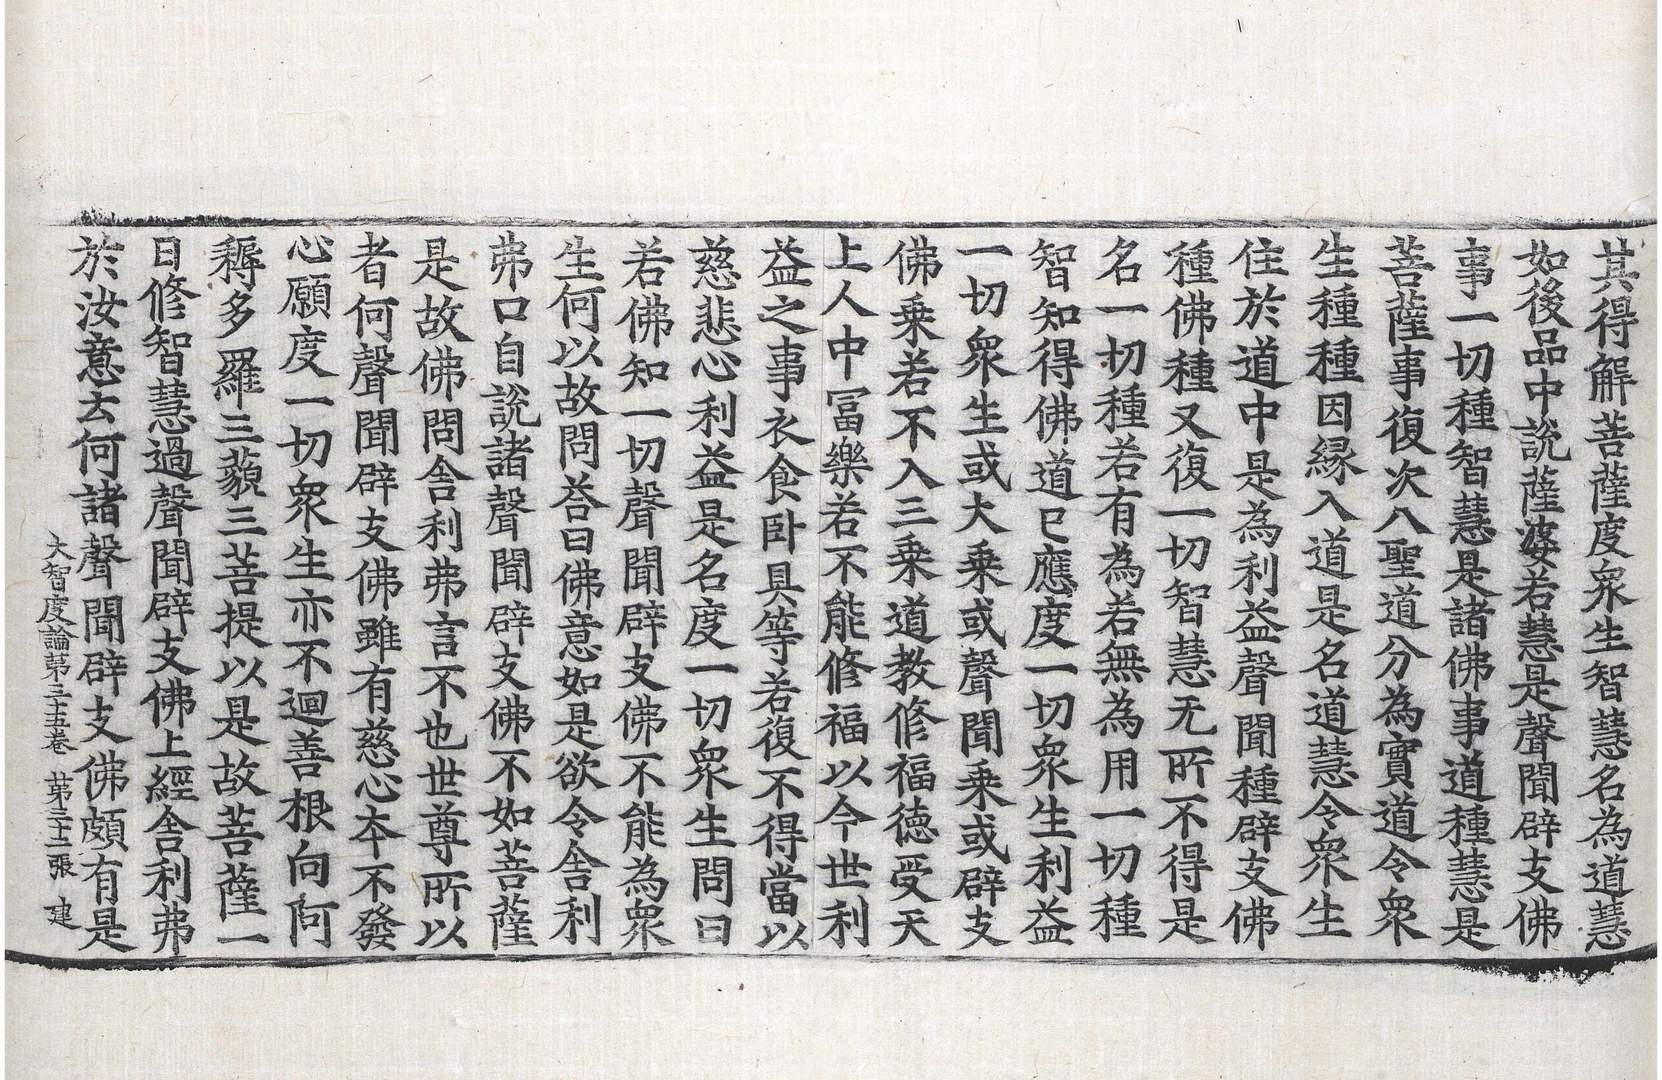 其得解菩薩度衆生智慧名為道慧
如後品中說薩婆若慧是聲聞辟支佛
事一切種智慧是諸佛事道種慧是
菩薩事復次八聖道分為實道令衆
生種種因緣入道是名道慧令衆生
住於道中是為利益聲聞種辟支佛
種佛種又復一切智慧无所不得是
名一切種若有為若無為用一切種
智知得佛道已應度一切衆生利益
一切衆生或大乗或聲聞乗或辟支
佛乗若不入三乗道教修福德受天
上人中冨樂若不能修福以今世利
益之事衣食卧具等若復不得當以
慈悲心利益是名度一切衆生問曰
若佛知一切聲聞辟支佛不能為衆
生何以故問荅曰佛意如是欲令舍利
弗口自說諸聲聞辟支佛不如菩薩
是故佛問舍利弗言不也世尊所以
者何聲聞辟支佛雖有慈心夲不發
心願度一切衆生亦不迴善根向阿
耨多羅三藐三菩提以是故菩薩一
日修智慧過聲聞辟支佛上經舍利弗
於汝意云何諸聲聞辟支佛頗有是
大智度論第三十五卷　第三十二張　建